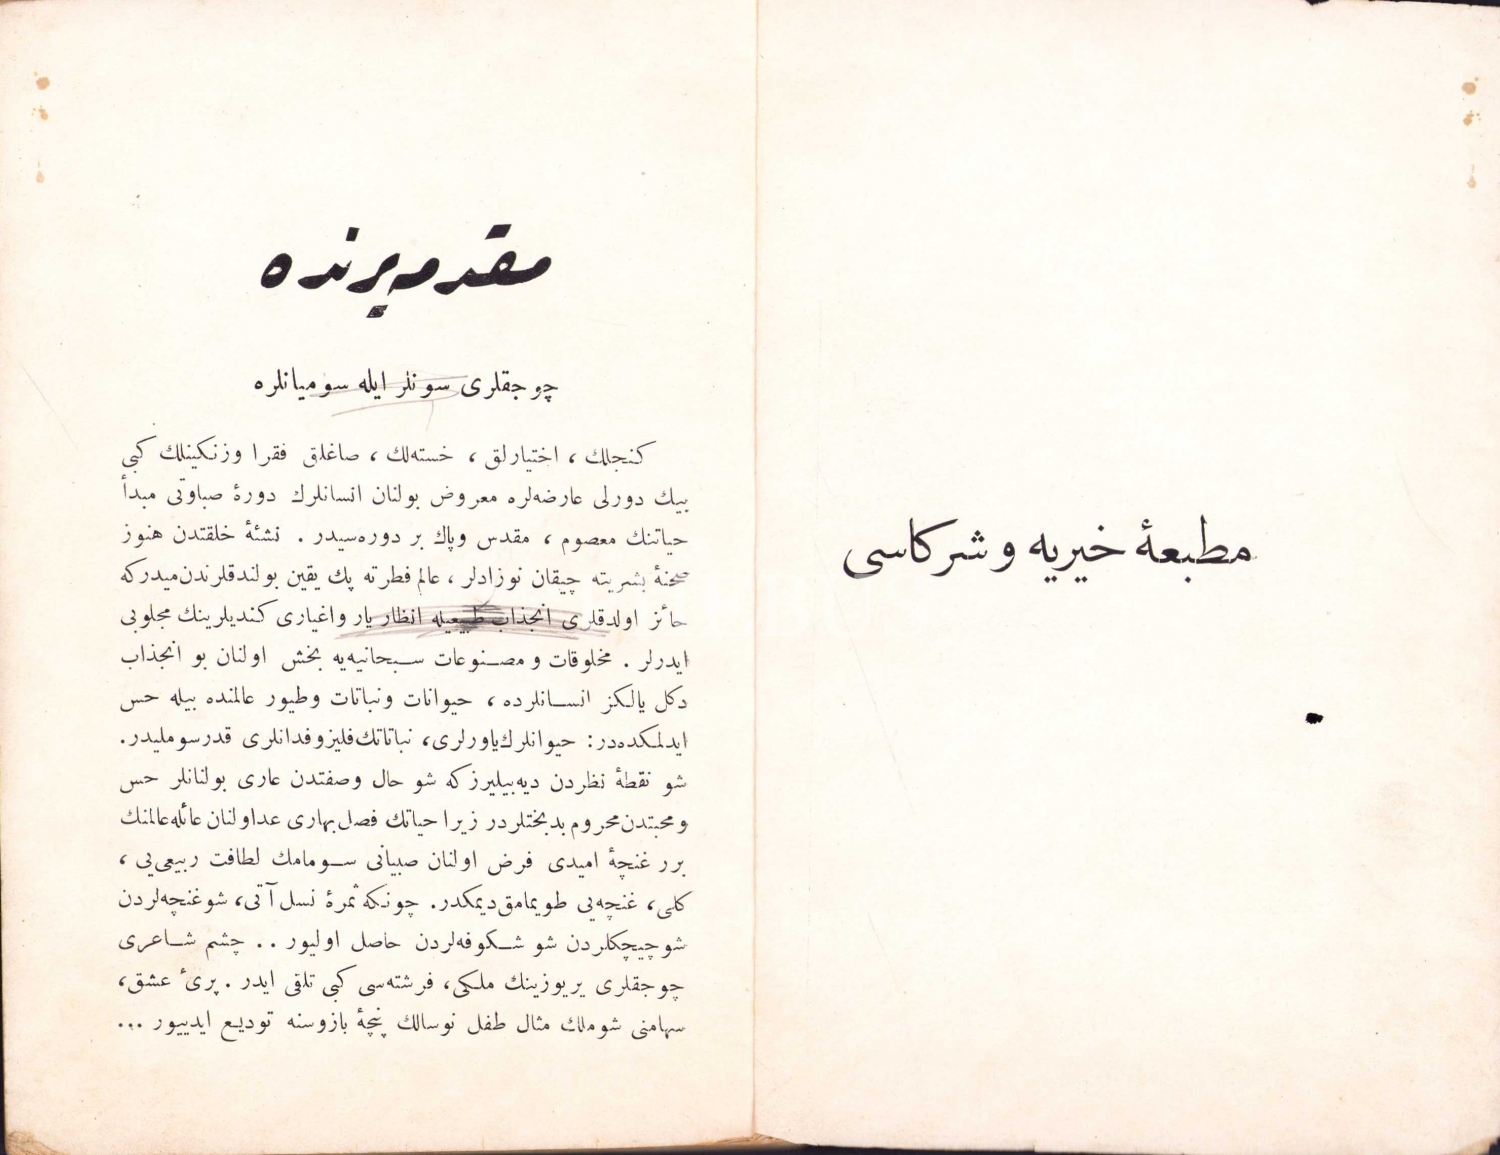 مطبعهٔ خیریه و شرکاسی
مقدمه یرنده
چوجقلری سونلر ایله سومیانلره
کنجلك ، اختیارلق ، خسته‌لك ، صاغلق فقرا وزنکینلك کبی
بیك دورلی عارضه‌لره معروض بولنان انسانلرك دورهٔ صباوتی مبدأ
حیاتنك معصوم ، مقدس وپاك بر دوره‌سیدر . نشئهٔ خلقتدن هنوز
صحنهٔ بشریته چیقان نوزادلر ، عالم فطرته پك یقین بولندقلرندن‌میدرکه
حائز اولدقلری انجذاب طبیعیله انظار یار واغیاری کندیلرینك مجلوبی
ایدرلر . مخلوقات و مصنوعات سبحانیه‌یه بخش اولنان بو انجذاب
دکل یالکز انسانلرده ، حیوانات ونباتات وطیور عالمنده بیله حس
ایدلمکده‌در: حیوانلرك‌یاورلری، نباتاتك‌فلیزوفدانلری قدرسوملیدر.
شو نقطهٔ نظردن دیه‌بیلیرزکه شو حال وصفتدن عاری بولنانلر حس
ومحبتدن‌محروم‌بدبختلردر زیرا حیاتك فصل‌بهاری عداولنان عائله‌عالمنك
برر غنچهٔ امیدی فرض اولنان صبیانی سومامك لطافت ربیعی‌یی ،
کلی، غنچه‌یی طویمامق‌دیمکدر. چونکه ثمرهٔ نسل آتی، شوغنچه‌لردن
شوچیچکلردن شو شکوفه‌لردن حاصل اولیور .. چشم شاعری
چوجقلری یریوزینك ملکی، فرشته‌سی کبی تلقی ایدر . پریٔ عشق،
سهامنی شوملك مثال طفل نوسالك پنچهٔ بازوسنه تودیع ایدییور ...